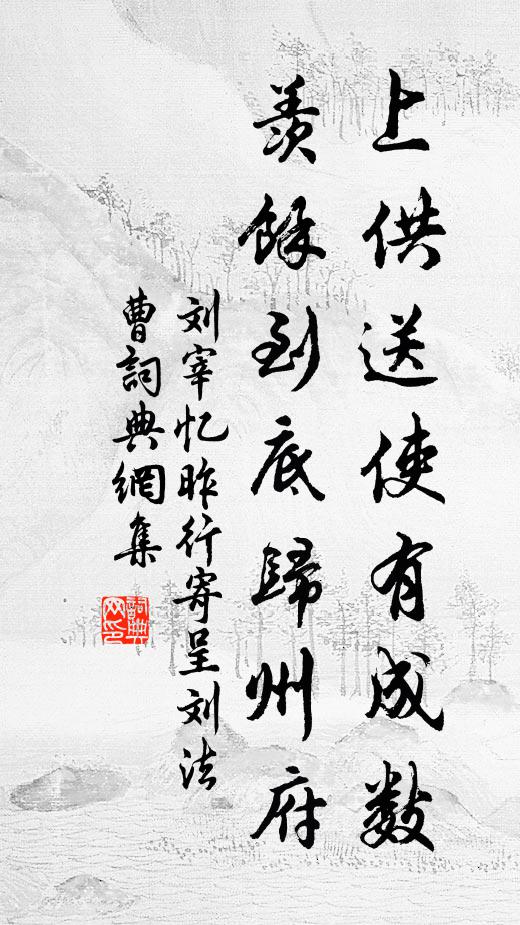 上供送使有成数
羡馀到底歸州府
刘宰忆昨行寄呈刘法
曹詞典網集
詞典网印